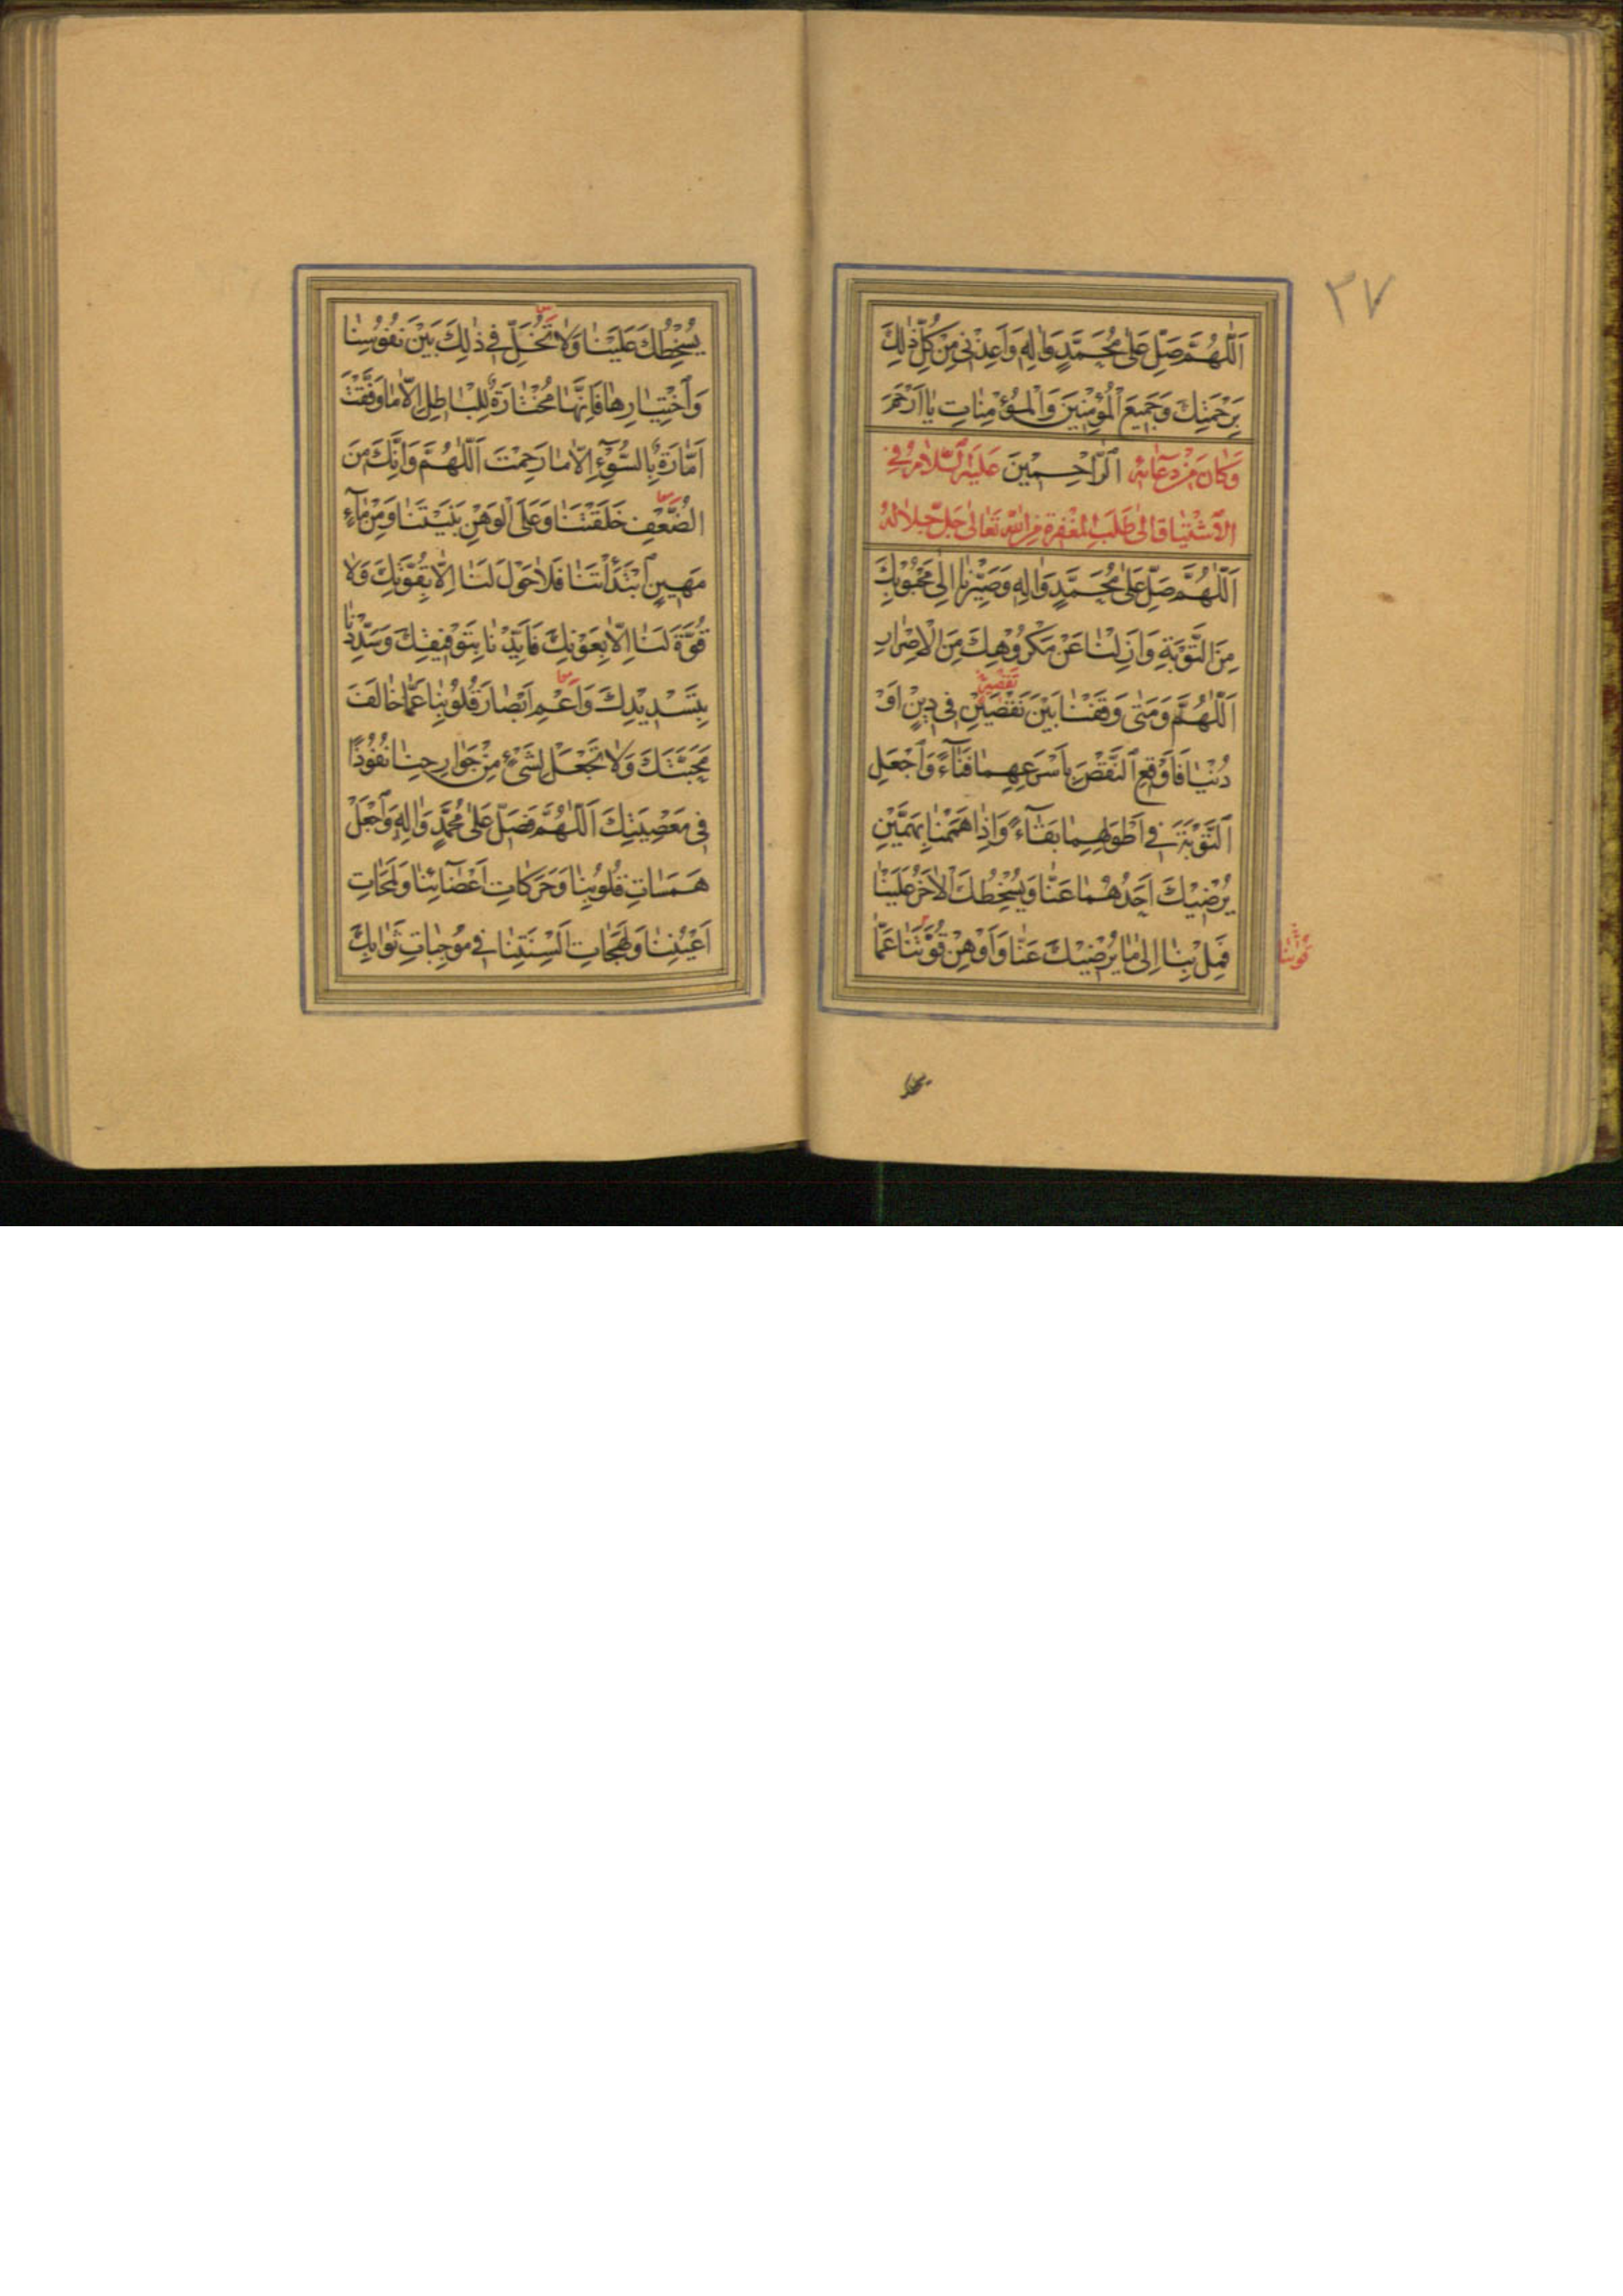 ٣٧
اَللّٰهُمَّ صَلِّ عَلىٰ مُحَمَّدٍ وَاٰلِهِ وَاَعِذْنى مِنْ كُلِّ ذٰلِكَ
بِرَحْمَتِكَ وَجَميعَ الْمُؤْمِنِينَ وَالْمُؤْمِنٰاتِ يٰا اَرْحَمَ
وَكٰانَ مِنْ دُعٰائِهِ اَلرّٰاحِمِيْنَ عَلَيْهِ السَّلٰامُ فى
الاشْتِيٰاقِ اِلىٰ طَلَبِ الْمَغْفِرَةِ مِنَ اللهِ تَعٰالىٰ جَلَّ جَلاٰلُهُ
اَللّٰهُمَّ صَلِّ عَلىٰ مُحَمَّدٍ وَاٰلِهِ وَصَيِّرْنٰا اِلىٰ مَحْبُوْبِكَ
مِنَ التَّوْبَةِ وَاَزِلْنٰا عَنْ مَكْرُوْهِكَ مِنَ الْاِصْرٰارِ
اَللّٰهُمَّ وَمَتىٰ وَقَفْنٰا بَيْنَ نَقْصَيْنِ فى دِيْنٍ اَوْ
دُنْيٰا فَاَوْقِعِ النَّقْصَ بِاَسْرَعِهِمٰا فَنٰاءً وَاجْعَلِ
اَلتَّوْبَةَ فى اَطْوَلِهِمٰا بَقٰاءً وَاِذٰا هَمَمْنٰا بِهَمَّيْنِ
يُرْضِيْكَ اَحَدُهُمٰا عَنّٰا وَيُسْخِطُكَ الْاٰخَرُ عَلَيْنٰا
فَمِلْ بِنٰا اِلىٰ مٰا يُرْضِيْكَ عَنّٰا وَاَوْهِنْ قُوَّتَنٰا عَمّٰا
يُسْخِطُكَ عَلَيْنٰا وَلاٰ تُخَلِّ فى ذٰلِكَ بَيْنَ نُفُوْسِنٰا
وَاخْتِيٰارِهٰا فَاِنَّهٰا مُخْتٰارَةٌ لِلْبٰاطِلِ اِلّاٰ مٰا وَفَّقْتَ
اَمّٰارَةٌ بِالسُّوْءِ اِلّاٰ مٰا رَحِمْتَ اَللّٰهُمَّ وَاِنَّكَ مِنَ
الضُّعْفِ خَلَقْتَنٰا وَعَلَى الْوَهْنِ بَنَيْتَنٰا وَمِنْ مٰاءٍ
مَهِينٍ ابْتَدَأْتَنٰا فَلاٰ حَوْلَ لَنٰا اِلّاٰ بِقُوَّتِكَ وَلاٰ
قُوَّةَ لَنٰا اِلّاٰ بِعَوْنِكَ فَاَيِّدْنٰا بِتَوْفِيقِكَ وَسَدِّدْنٰا
بِتَسْدِيْدِكَ وَاَعْمِ اَبْصٰارَ قُلُوْبِنٰا عَمّٰا خٰالَفَ
مَحَبَّتَكَ وَلاٰ تَجْعَلْ لِشَىْءٍ مِنْ جَوٰارِحِنٰا نُفُوْذًا
فى مَعْصِيَتِكَ اَللّٰهُمَّ فَصَلِّ عَلىٰ مُحَمَّدٍ وَاٰلِهِ وَاجْعَلْ
هَمَسٰاتِ قُلُوْبِنٰا وَحَرَكٰاتِ اَعْضٰائِنٰا وَلَمَحٰاتِ
اَعْيُنِنٰا وَلَهَجٰاتِ اَلْسِنَتِنٰا فى مُوْجِبٰاتِ ثَوٰابِكَ